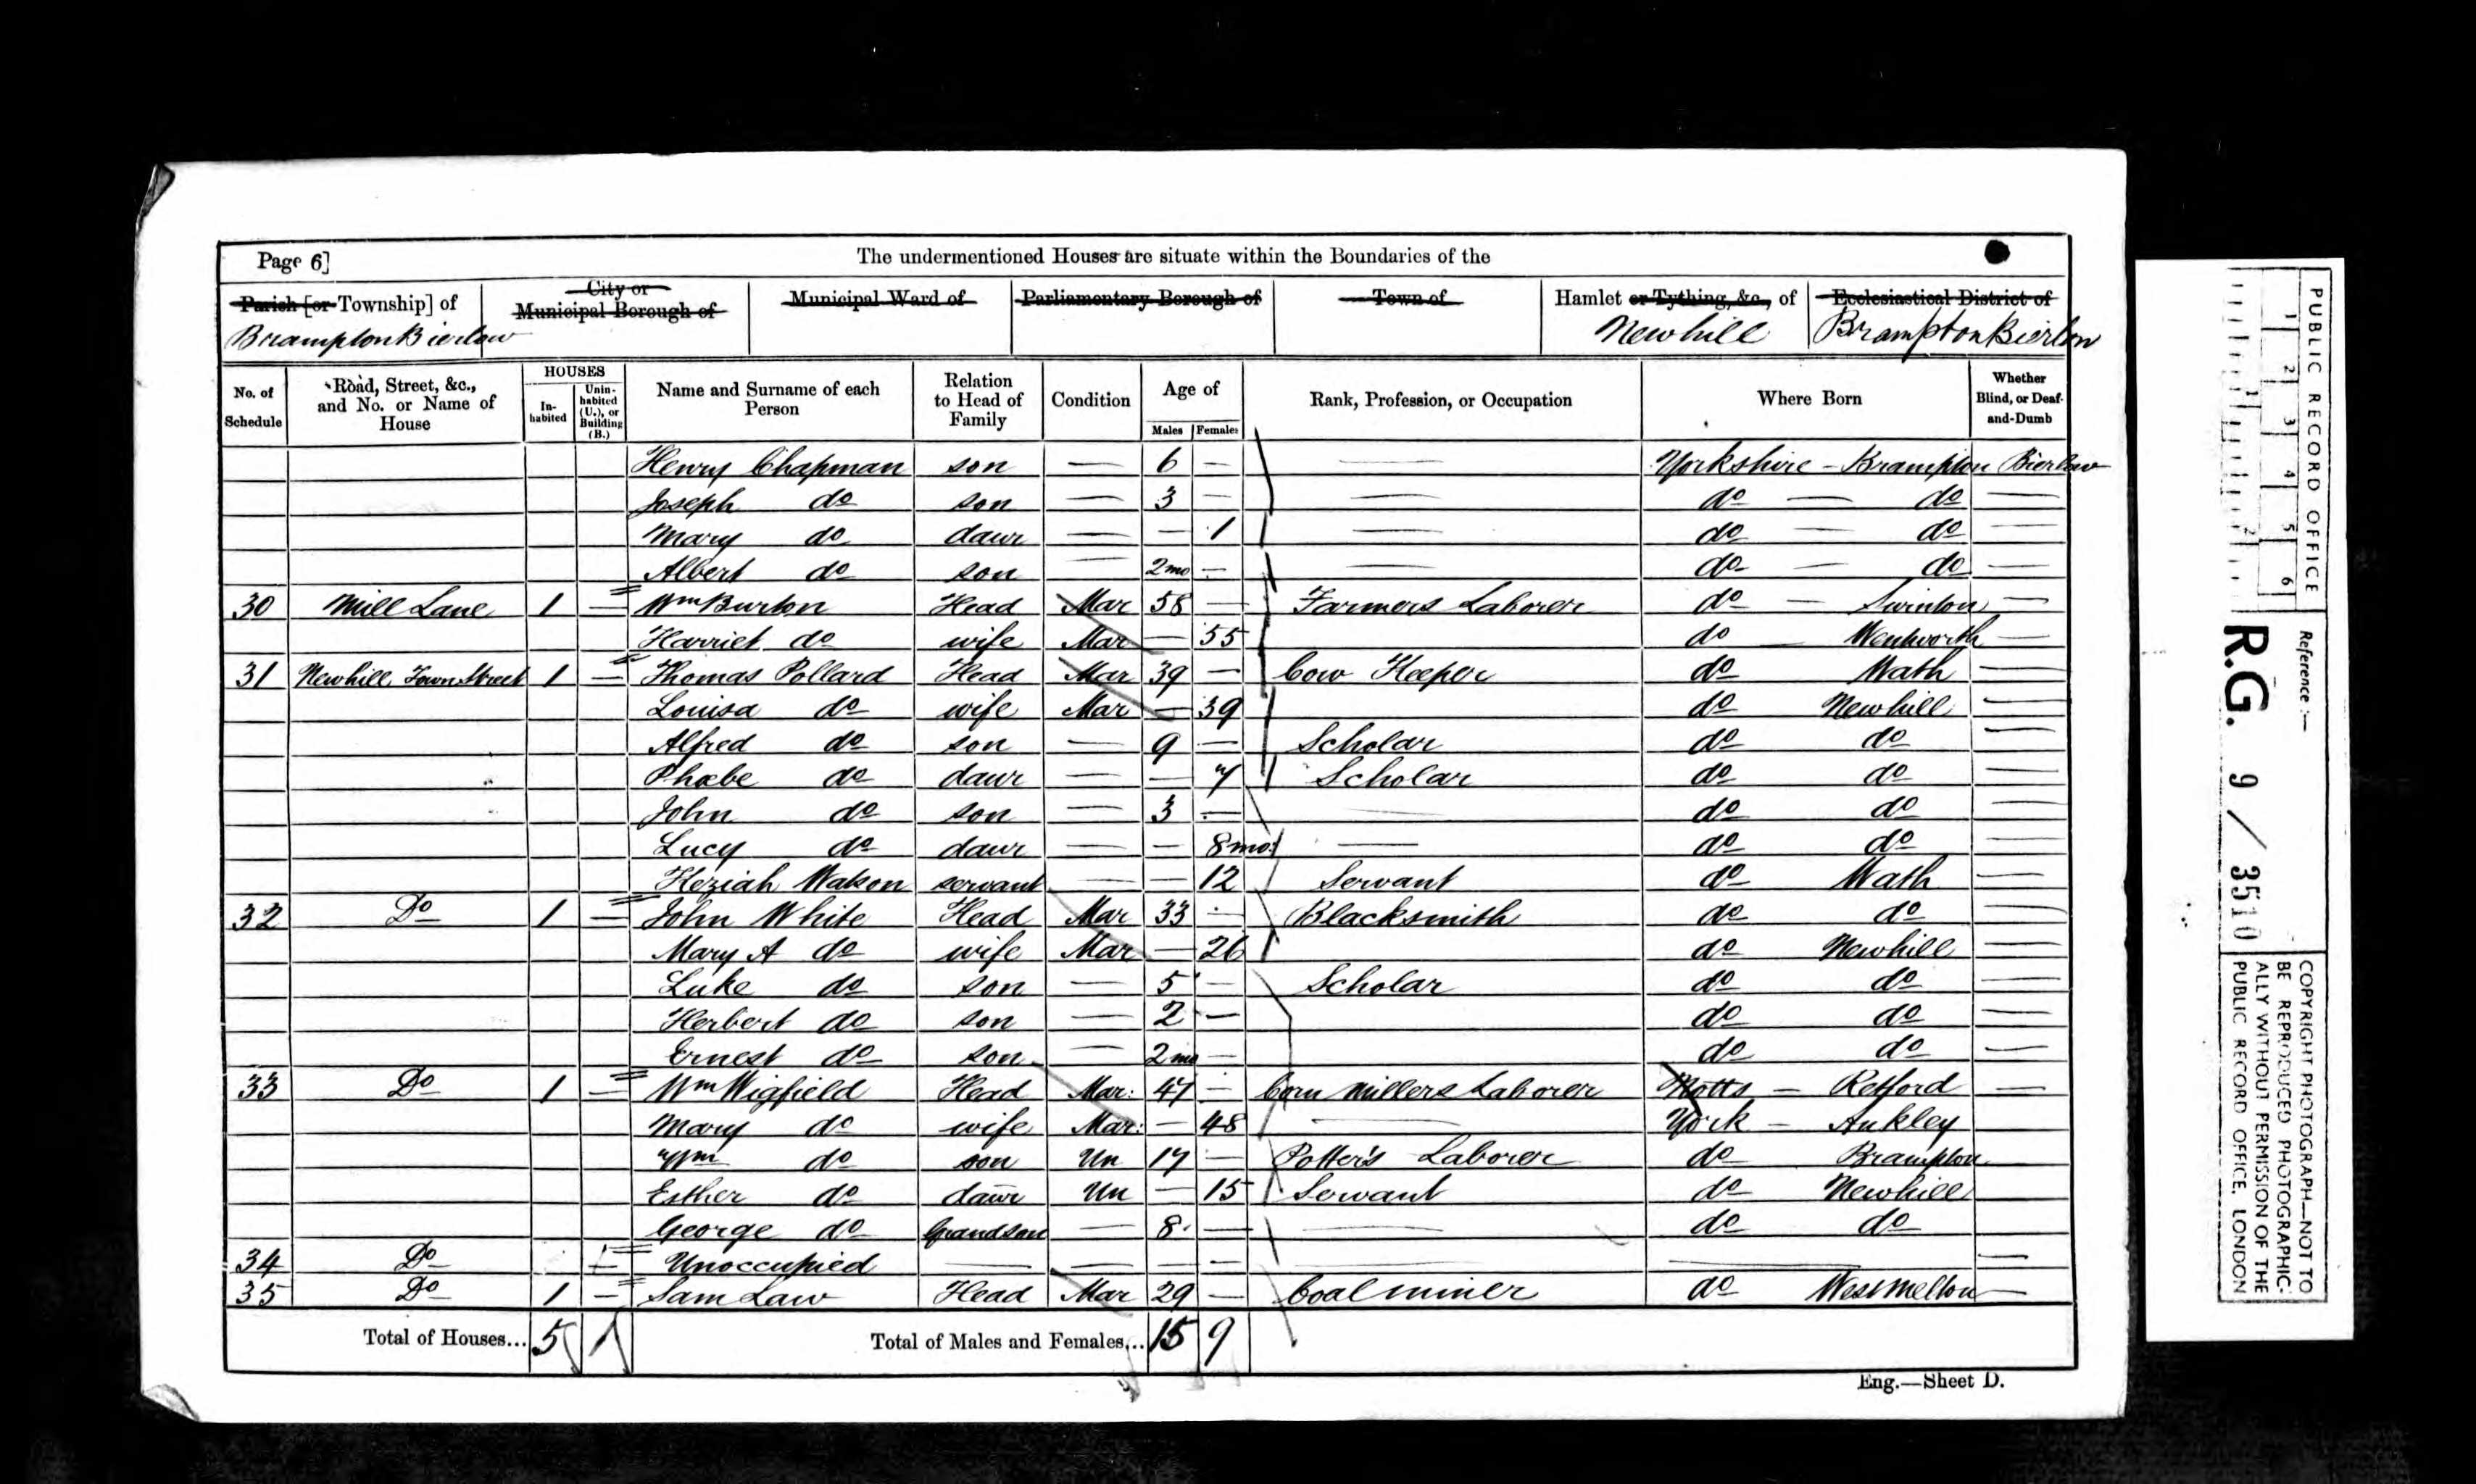 Page 6] The undermentioned Houses are situate within the Boundaries of the
Parish [or Township] of City or Municipal Borough of Municipal Ward of Parliamentary Borough of Town of Hamlet or Tything, &c., of Ecclesiastical District of
Brampton Bierlow Newhill Brampton Bierlow
No. of Schedule Road, Street, &c., and No. or Name of House HOUSES In-habited Unin-habited (U.), or Building (B.) Name and Surname of each Person Relation to Head of Family Condition Age of Males Females Rank, Profession, or Occupation Where Born Whether Blind, or Deaf-and-Dumb
Henry Chapman son — 6 — — Yorkshire - Brampton Bierlow
Joseph do son — 3 — — do — do —
Mary do dawr — — 1 — do — do —
Albert do son — 2mo — — do — do —
30 Mill Lane 1 — Wm Burton Head Mar 58 — Farmers Laborer do — Swinton —
Harriet do wife Mar — 55 do — Wentworth —
31 Newhill Town Street 1 — Thomas Pollard Head Mar 39 — Cow Keeper do Wath —
Louisa do wife Mar — 39 do Newhill —
Alfred do son — 9 — Scholar do do —
Phœbe do dawr — — 7 Scholar do do —
John do son — 3 — — do do —
Lucy do dawr — — 8mo: — do do —
Keziah Watson servant — — 12 Servant do Wath —
32 Do 1 — John White Head Mar 33 — Blacksmith do do —
Mary A do wife Mar — 26 do Newhill —
Luke do son — 5 — Scholar do do —
Herbert do son — 2 — do do —
Ernest do son — 2mo — do do —
33 Do 1 — Wm Wigfield Head Mar: 47 — Corn Millers Laborer Notts — Retford —
Mary do wife Mar: — 48 — York — Aukley
Wm do son Un 17 — Potter's Laborer do Brampton
Esther do dawr Un — 15 Servant do Newhill
George do Grandson — 8 — — do do
34 Do 1 Unoccupied — — — — — — —
35 Do 1 — Sam Law Head Mar 29 — Coal miner do West Melton —
Total of Houses... 5 1 Total of Males and Females... 15 9
Eng.—Sheet D.
PUBLIC RECORD OFFICE
1 2 3 4 5 6
1 2
Reference :—
R.G. 9 / 3510
COPYRIGHT PHOTOGRAPH—NOT TO
BE REPRODUCED PHOTOGRAPHIC-
ALLY WITHOUT PERMISSION OF THE
PUBLIC RECORD OFFICE, LONDON